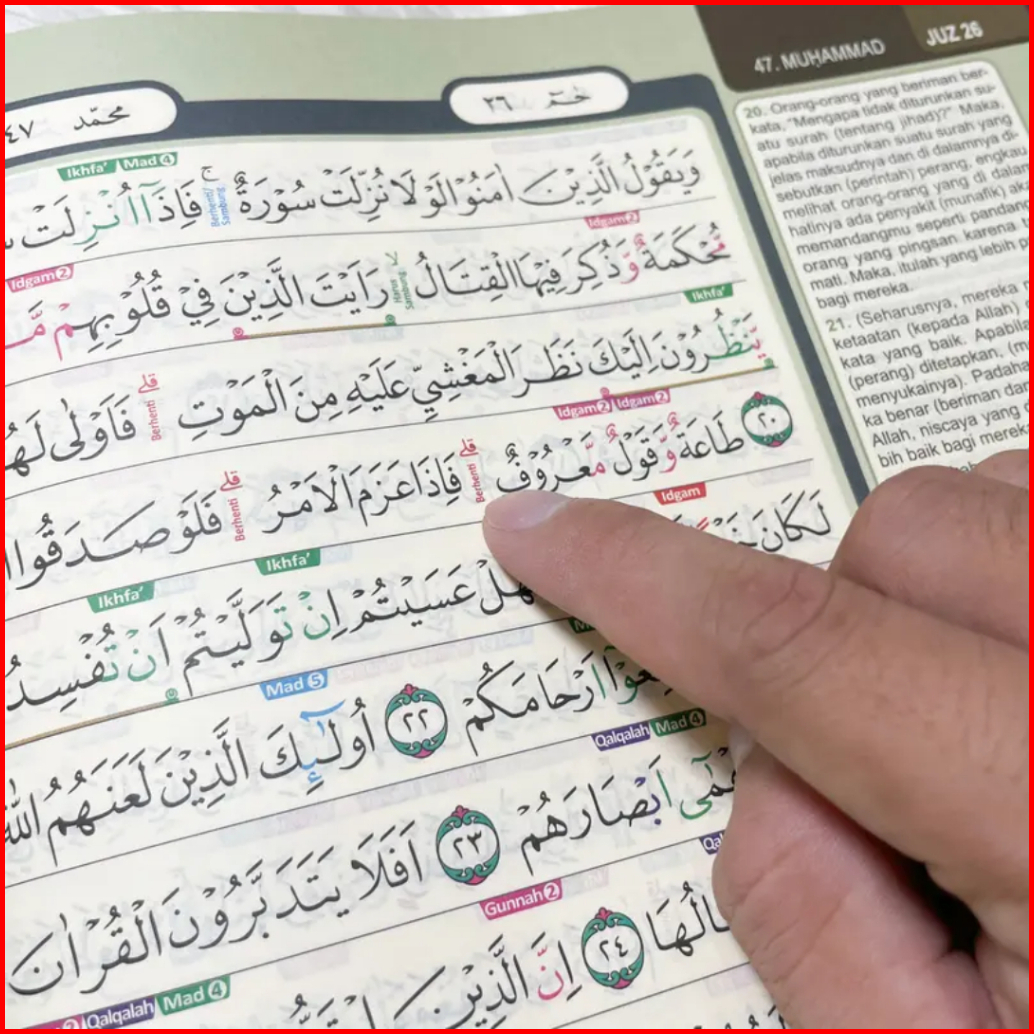 47. MUḤAMMAD
JUZ 26
محمّد ٤٧
حٰمٓ ٢٦
Ikhfa' Mad 4
وَيَقُوْلُ الَّذِيْنَ اٰمَنُوْا لَوْلَا نُزِّلَتْ سُوْرَةٌ ۚ فَاِذَآ اُنْزِلَتْ
Berhenti/Sambung
Idgam 2
Idgam 2
مُّحْكَمَةٌ وَّذُكِرَ فِيْهَا الْقِتَالُ ۙ رَاَيْتَ الَّذِيْنَ فِيْ قُلُوْبِهِمْ
Harus Sambung
Ikhfa'
يَّنْظُرُوْنَ اِلَيْكَ نَظَرَ الْمَغْشِيِّ عَلَيْهِ مِنَ الْمَوْتِ ۗ فَاَوْلٰى
Berhenti
Idgam 2 Idgam 2
٢٠ طَاعَةٌ وَّقَوْلٌ مَّعْرُوْفٌ ۗ فَاِذَا عَزَمَ الْاَمْرُ ۗ فَلَوْ صَدَقُوا
Berhenti
Berhenti
Idgam
لَكَانَ
Ikhfa'
Ikhfa'
عَسَيْتُمْ اِنْ تَوَلَّيْتُمْ اَنْ تُفْسِدُ
Mad 5
اَرْحَامَكُمْ ٢٢ اُولٰۤىِٕكَ الَّذِيْنَ لَعَنَهُمُ اللّٰهُ
Qalqalah Mad 4
اَبْصَارَهُمْ ٢٣ اَفَلَا يَتَدَبَّرُوْنَ الْقُرْاٰنَ
Gunnah 2
٢٤ اِنَّ الَّذِيْنَ
Qalqalah Mad 4
20. Orang-orang yang beriman ber-
kata, "Mengapa tidak diturunkan su-
atu surah (tentang jihad)?" Maka,
apabila diturunkan suatu surah yang
jelas maksudnya dan di dalamnya di-
sebutkan (perintah) perang, engkau
melihat orang-orang yang di dalam
hatinya ada penyakit (munafik)
memandangmu seperti
orang yang pingsan karena
mati. Maka, itulah yang lebih
bagi mereka.
21. (Seharusnya, mereka
ketaatan (kepada Allah)
kata yang baik. Apabila
(perang) ditetapkan,
menyukainya). Padahal
ka benar (beriman dan
Allah, niscaya yang
bih baik bagi mereka